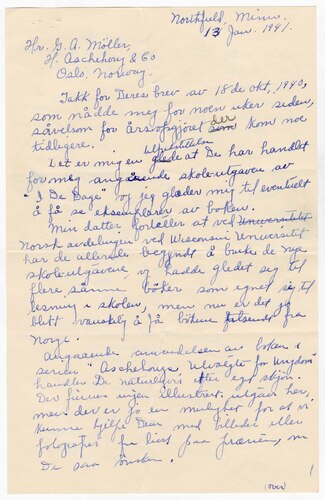 Northfield, Minn.
13 Jan. 1941.
Hr. G. A. Möller,
H. Aschehoug & Co
Oslo, Norway.
Takk for Deres brev av 18 de okt, 1940,
som nådde meg for noen uker siden,
såvelsom for årsopgjöret der som kom noe
tidligere.
Det er mig en tilfredsstillelse glede at De har handlet
for meg angående skoleutgaven av
"I De Dage" og jeg gleder mig til eventuelt
å få se eksemplarer av boken.
Min datter forteller at ved Universitetet
Norsk avdelingen ved Wisconsin Universitet
har de allerede begyndt å bruke de nye
skoleutgavene vi hadde gledet seg til
flere sånne böker som egnet sig til
lesning i skolen, men nu er det jo
blitt vanskelig å få bökene tilsendt fra
Norge.
Angaaende anvendelsen av boken i
serien "Aschehougs Utvalgte for Ungdom"
handler De naturligvis efter eget skjön.
Der finnes ingen illustrert utgave her,
men der er jo en mulighet for at vi
kunne hjelpe Dem med billeder eller
fotografier fra livet paa prærien, om
De saa önsker.
(over)